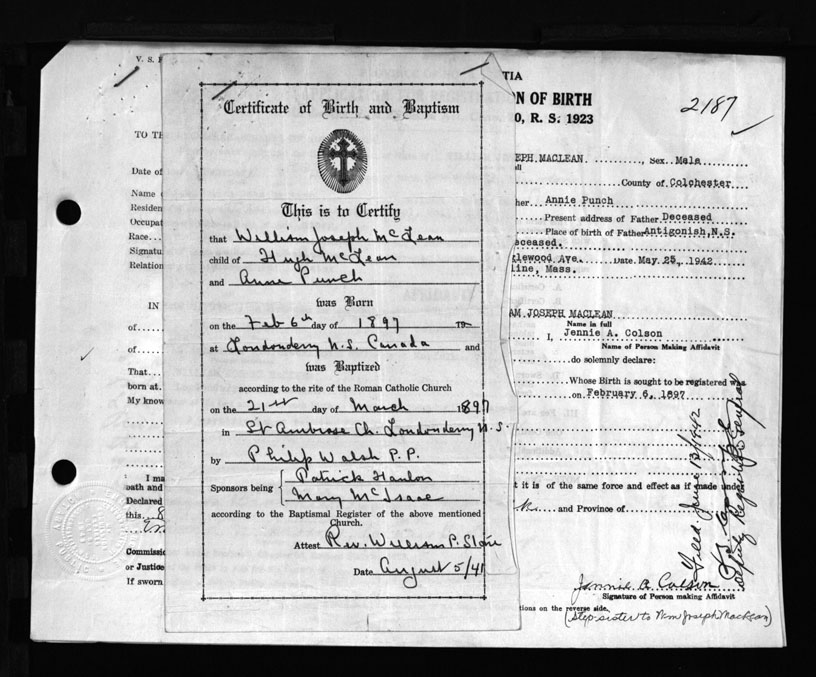 V. S.
TO TH
Date of
Name
Residen
Occupat
Race...
Signatu
Relation
IN
of
of
That
born at.
My know
I ma
oath and
Declared
this 8
Commissio
or Justice
If sworn
Certificate of Birth and Baptism
This is to Certify
that William Joseph McLean
child of Hugh McLean
and Anne Punch
was Born
on the Feb 6th day of 1897 19
at Londonderry N.S. Canada and
was Baptized
according to the rite of the Roman Catholic Church
on the 21st day of March 1897
in St Ambrose Ch. Londonderry N.S.
by Philip Walsh P.P.
Sponsors being Patrick Hanlon
Mary McIsaac
according to the Baptismal Register of the above mentioned
Church.
Attest Rev. William P. Slate
Date August 5/41
TIA
N OF BIRTH
0, R. S. 1923
2187
EPH MACLEAN, Sex Male
County of Colchester
her Annie Punch
Present address of Father Deceased
Place of birth of Father Antigonish, N.S.
eceased.
glewood Ave. Date May 25, 1942
line, Mass.
AM JOSEPH MACLEAN
Name in full
I, Jennie A. Colson
Name of Person Making Affidavit
do solemnly declare:
Whose Birth is sought to be registered was
on February 6, 1897
t it is of the same force and effect as if made under
and Province of
Filed June 13/1942
Deputy Registrar General
Jennie A Colson
Signature of Person making Affidavit
tions on the reverse side.
(Step-sister to Wm Joseph MacLean)